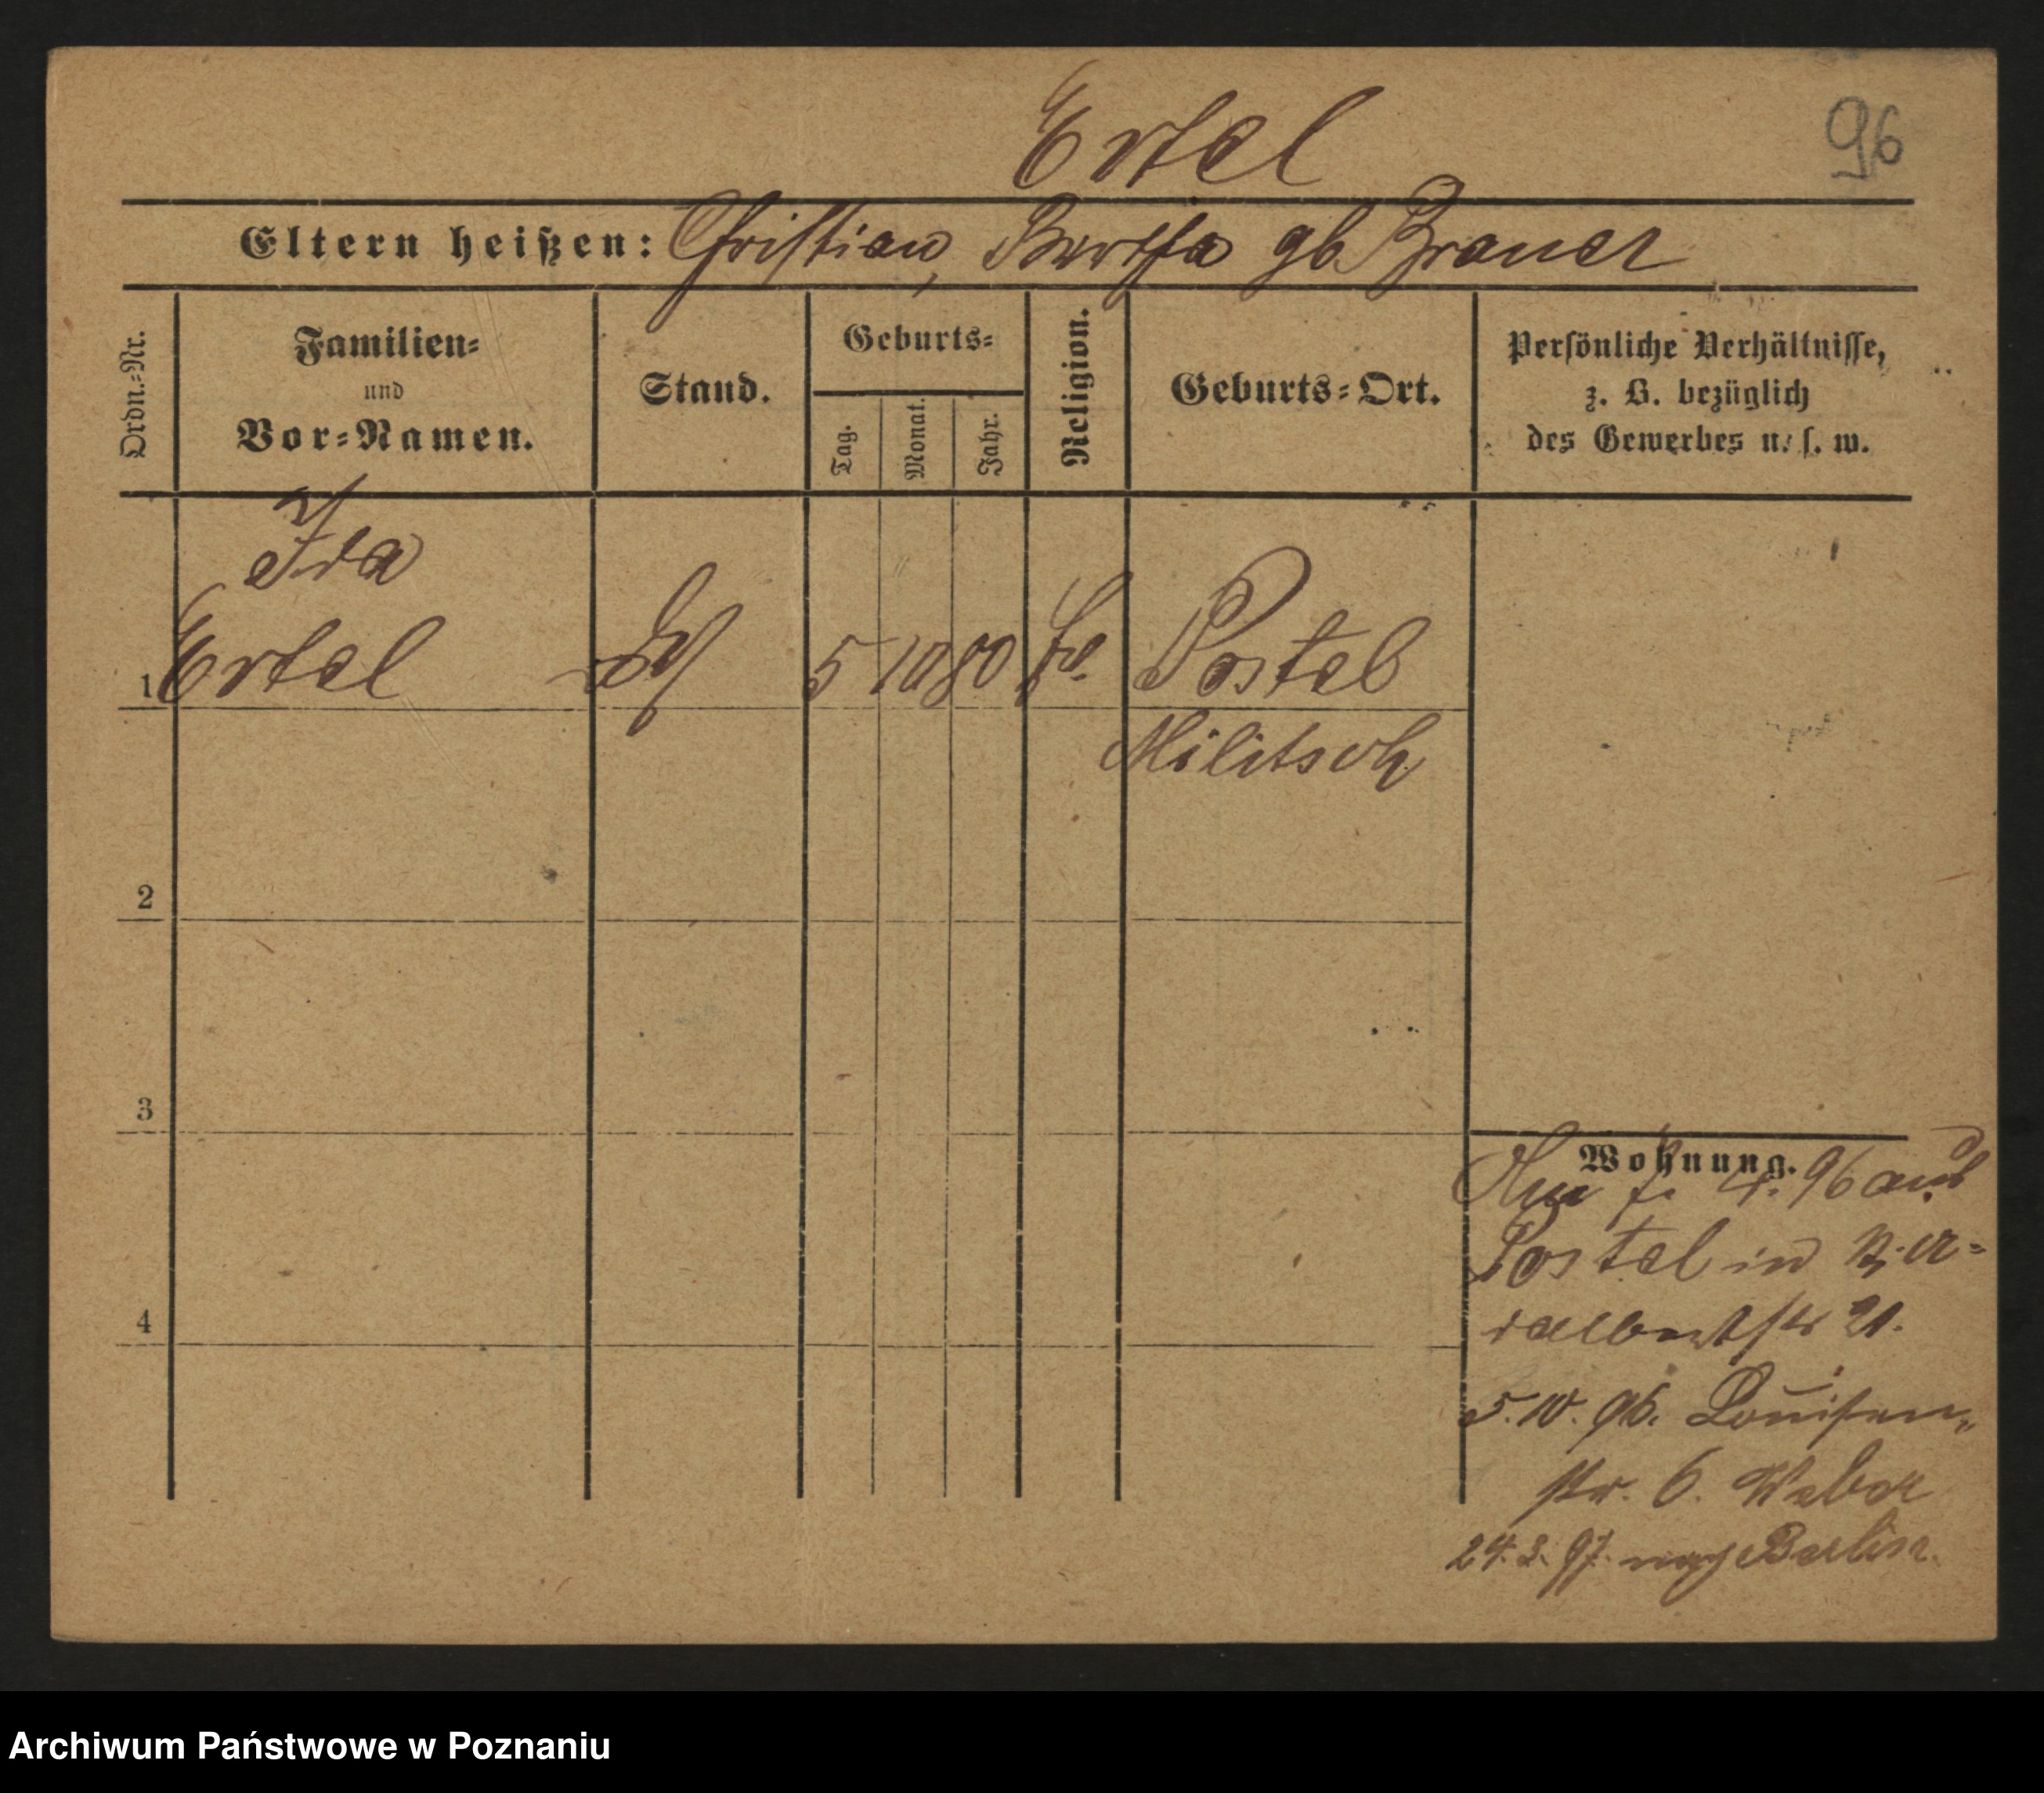 Ertel
96
Eltern heißen: Christian, Bertha gb Brauer
Ordn.=Nr.
Familien=
und
Vor=Namen.
Stand.
Geburts=
Tag.
Monat.
Jahr.
Religion.
Geburts=Ort.
Persönliche Verhältnisse,
z. B. bezüglich
des Gewerbes u. s. w.
Ida
1 Ertel 5 10 80 Postel
Militsch
2
3
4
Wohnung.
4. 96 aus
Postel in
21.
5. 10. 96. Louisen=
str. 6. Weber
24. 3. 97. nach Berlin.
Archiwum Państwowe w Poznaniu